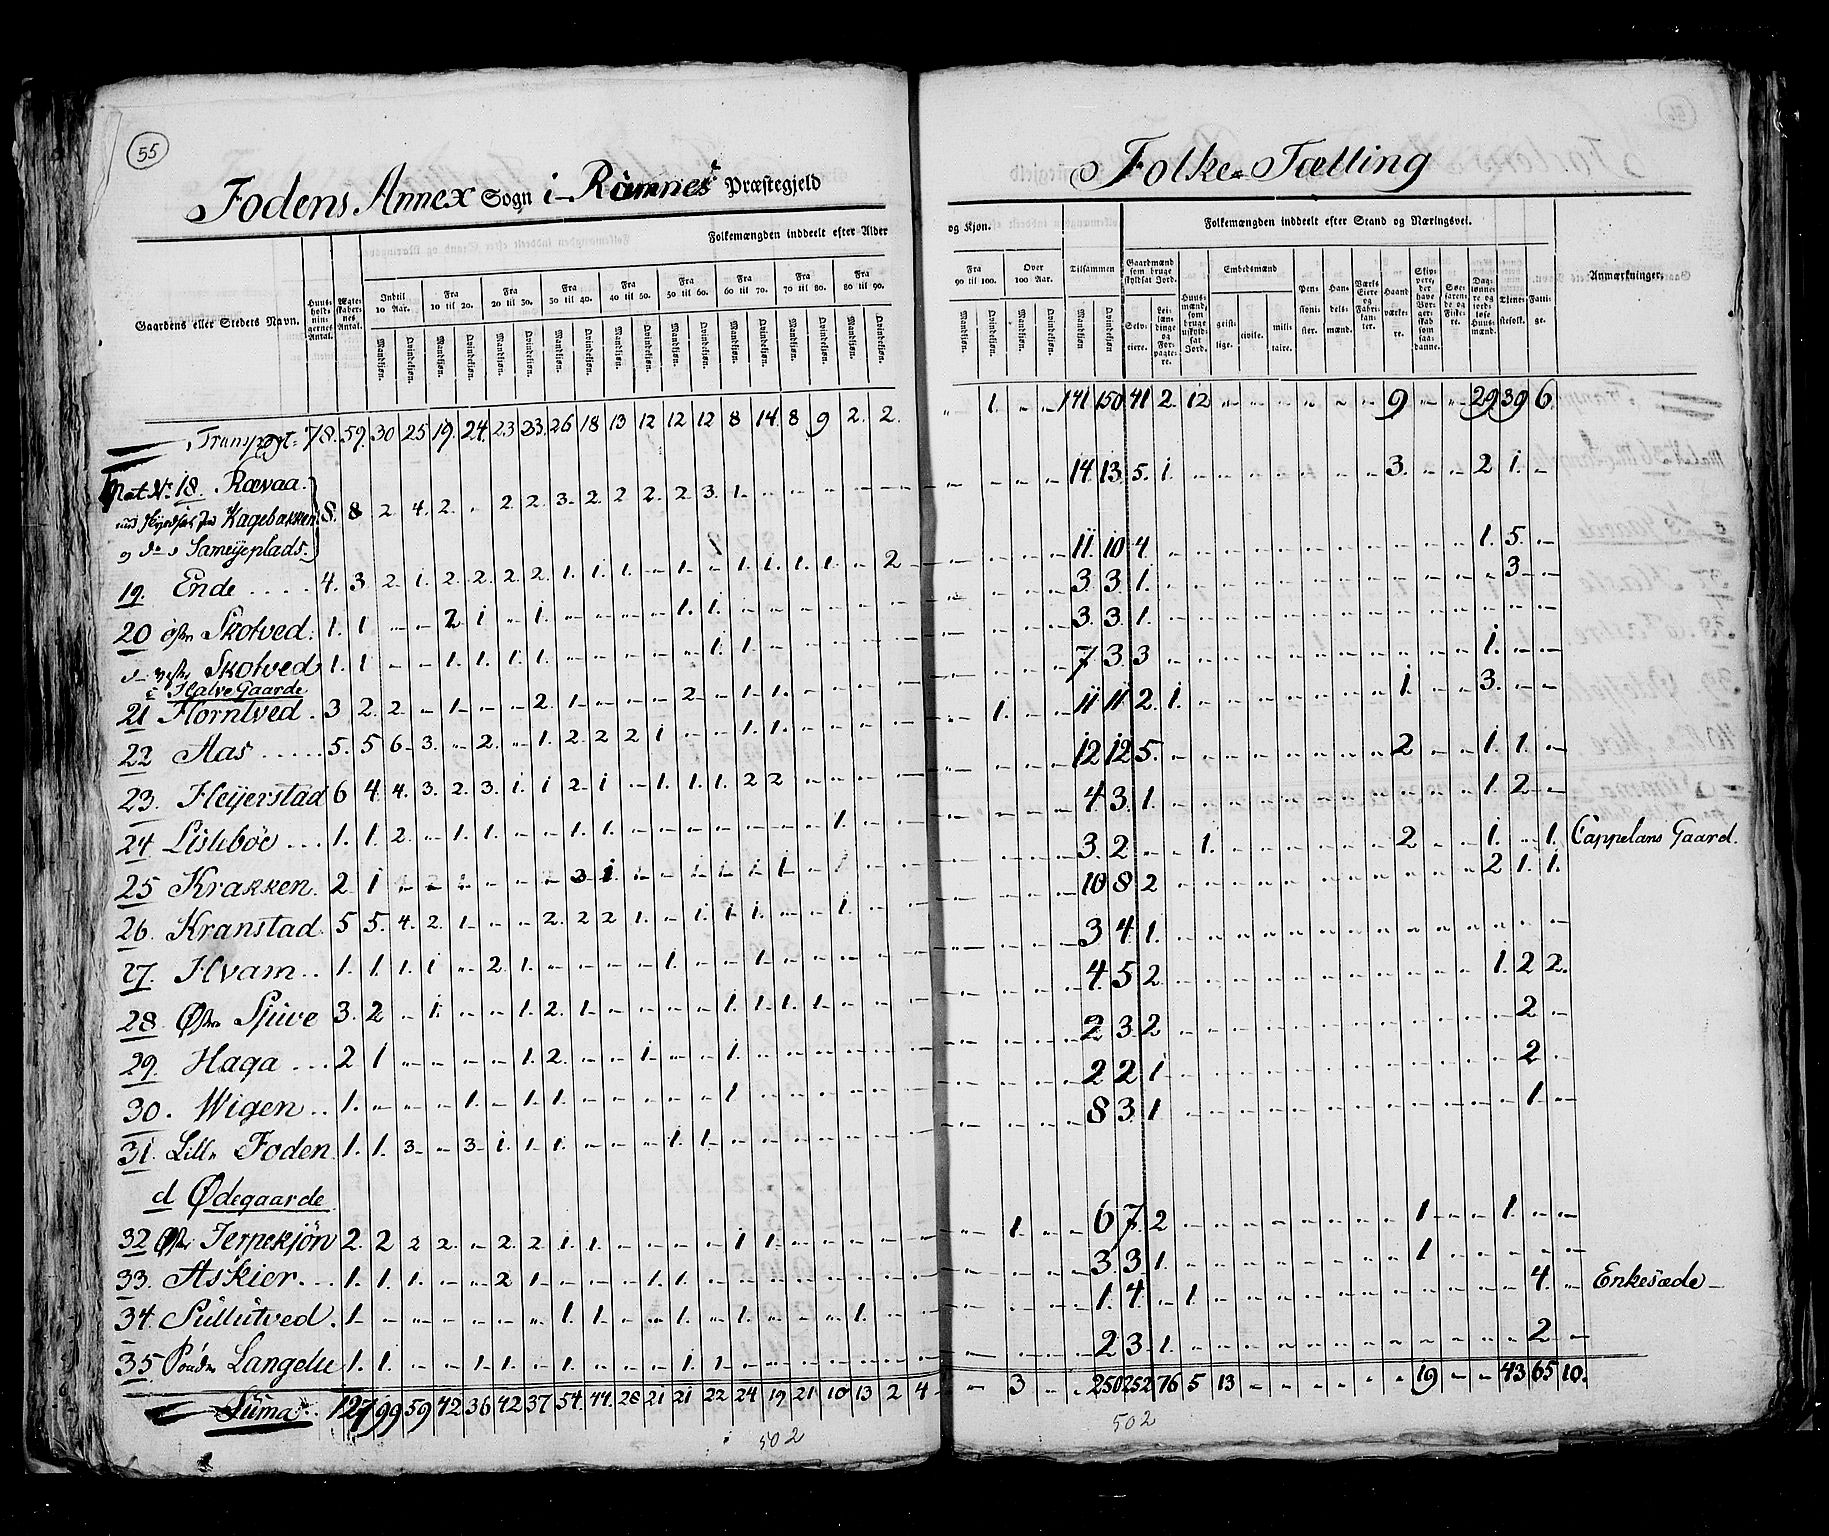 55
Fodens Annex Sogn i Ramnes Præstegjeld
Folke-Tælling
Gaardens eller Stedets Navn.
Huusholdningernes Antal.
Ægteskabernes Antal.
Folkemængden inddeelt efter Alder
og Kjøn.
Indtil 10 Aar.
Fra 10 til 20.
Fra 20 til 30.
Fra 30 til 40.
Fra 40 til 50.
Fra 50 til 60.
Fra 60 til 70.
Fra 70 til 80.
Fra 80 til 90.
Fra 90 til 100.
Over 100 Aar.
Tilsammen
Mandkjøn. Qvindekjøn.
Folkemængden inddeelt efter Stand og Næringsvei.
Gaardmænd som bruge skyldsat Jord.
Selveiere.
Leilændinge og Forpagtere.
Huusmænd, som bruge uskyldsat Jord.
Embedsmænd
geistlige. civile. militaire.
Pensionister.
Handelsmænd.
Værks Eiere og Fabrikanter.
Haandværkere.
Skippere, der have Borgerskab som saadanne.
Søefarende og Fiskere.
Daglønnere og jordløse Huusmænd.
Tjenestefolk.
Fattige.
Anmærkninger.
Transport 78. 59. 30 25 19. 24. 23 23. 26 18 13 12 12 12 8 14 8 9 2. 2. " 1. " " 141 150 41 2. 12 " " " " " " 9 " " 29 39 6
Mat. No. 18. Rævaa.
Kagebakken 8. 8 2 4. 2 - 2 2. 3 2. 2 2. 2 3. 1. 14 13. 5. 1. 3. 2 1.
Sameyeplads.
19. Ende 4. 3 2 1. 2 2. 2. 2. 1. 1. 1. - 1. - 1. 1. 1. 1. - 2 11. 10 4 1. 5.
20 østre Skotved. 1. 1 - - 2 1 - 1. - - - - 1. 1. 3. 3. 1. 3
d vestre Skotved 1. 1 - - 1. 1. 1. 1. - - - - - 1. 1. 3. 3. 1.
c Halve Gaarde
21 Horntved 3 2. 2 - 1. - - 2. 1. - - - 2 - 1. 1. 7 3. 3 1.
22 Aas 5. 5 6 3. - 2. - 1. 2. 2 2 1 - - 1. 1. 1. 11 11 2. 1. 1. 3.
23. Heijerstad 6 4. 4. 3. 2. 3. 1. 1 2. 1 - 1. 1. 1. 2 2 12 12 5. 2 1. 1.
24 Lislebøe 1. 1. 2 - 1. 1. - - 1. 1. - 1. 4. 3. 1. 1. 2
25 Krakken. 2 1 3. 2 1. 2 1. 1. Cappelans Gaard.
26. Kranstad 5 5. 4. 2 1. - - 2. 2 2 1. - 1. 1. 1. - - 1. 10 8. 2 2 1. 1.
27. Hvam 1. 1. 1. 1 - 2 1. - - - - 1. - - 1. 3 4. 1.
28. Østre Sjuve 3. 2 - 1. - - 1. 2. 1. - - - - 1. 1. 1. 1. 4. 5 2 1. 2 2.
29. Haga 2 1 - - - - 1. 2. - - 1. - - 1. 2 3. 2 2
30. Wigen 1. - - - 1. - 1. 1. - - - - - 1 2 2 1 2
31. Lille Foden 1. 1. 3 - 3 1. 1. 1. - - - 1. 1. 8 3. 1 1.
d Ødegaarde
32 Østre Jerpekjøn 2. 2 2 2. - 2. 2 1. 1. - - - - 1 1. 1. 6 7. 2 1. 1.
33. Askier 1. 1. 1. - - 2 1. - - - 1. 1. 3. 3 1. 1
34. Sullutved. 1. - - - - - - - 1. 1. - - 1. - 1. - - - 1. 1. 4. - 1. 4. Enkesæde
35 Langelu 1. 1. - - 1. - 1. - 1. - - - 1. 1. 2 3. 1. 2
Summa. 127 99 59 42 36 42 37 54. 44. 28 21 21 22 24 19 21 10 13 2 4 - 3 - - 250 252 76 5 13 - - - - - - 19 - - 43 65 10.
502
502